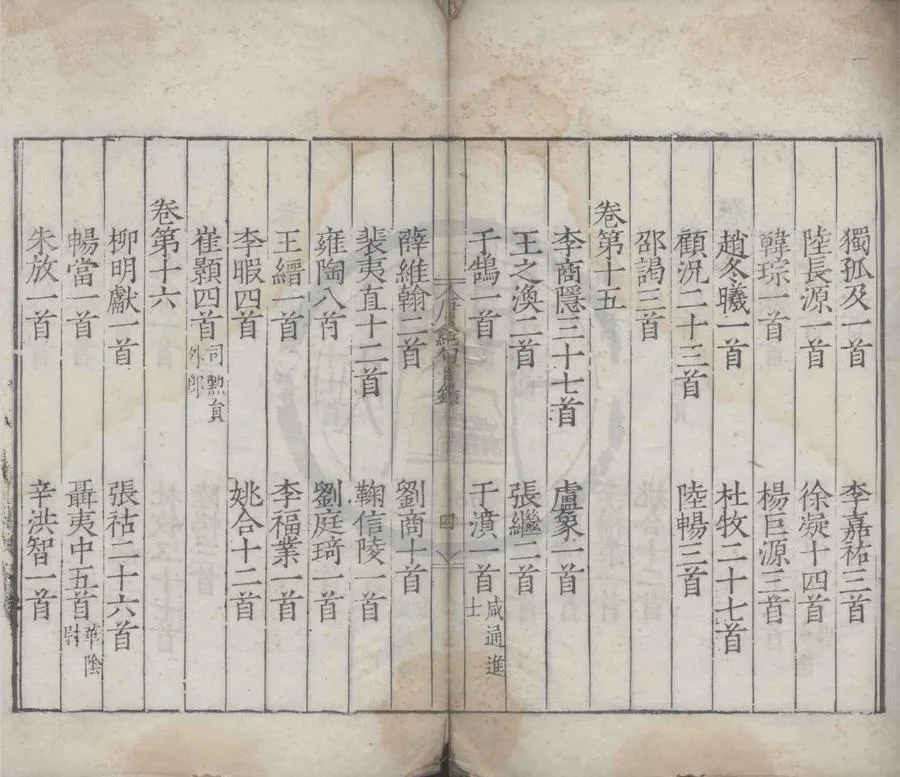 獨孤及一首 李嘉祐三首
陸長源一首 徐凝十四首
韓琮一首 楊巨源三首
趙冬曦一首 杜牧二十七首
顧況二十三首 陸暢三首
邵謁三首
卷第十五
李商隱三十七首 盧象一首
王之渙二首 張繼二首
于鵠一首 于濆一首 咸通進士
唐絕句目錄 四
薛維翰二首 劉商十首
裴夷直十二首 鞠信陵一首
雍陶八首 劉庭琦一首
王縉一首 李福業一首
李暇四首 姚合十二首
崔顥四首 司勲員外郎
卷第十六
柳明獻一首 張祜二十六首
暢當一首 聶夷中五首 華陰尉
朱放一首 辛洪智一首